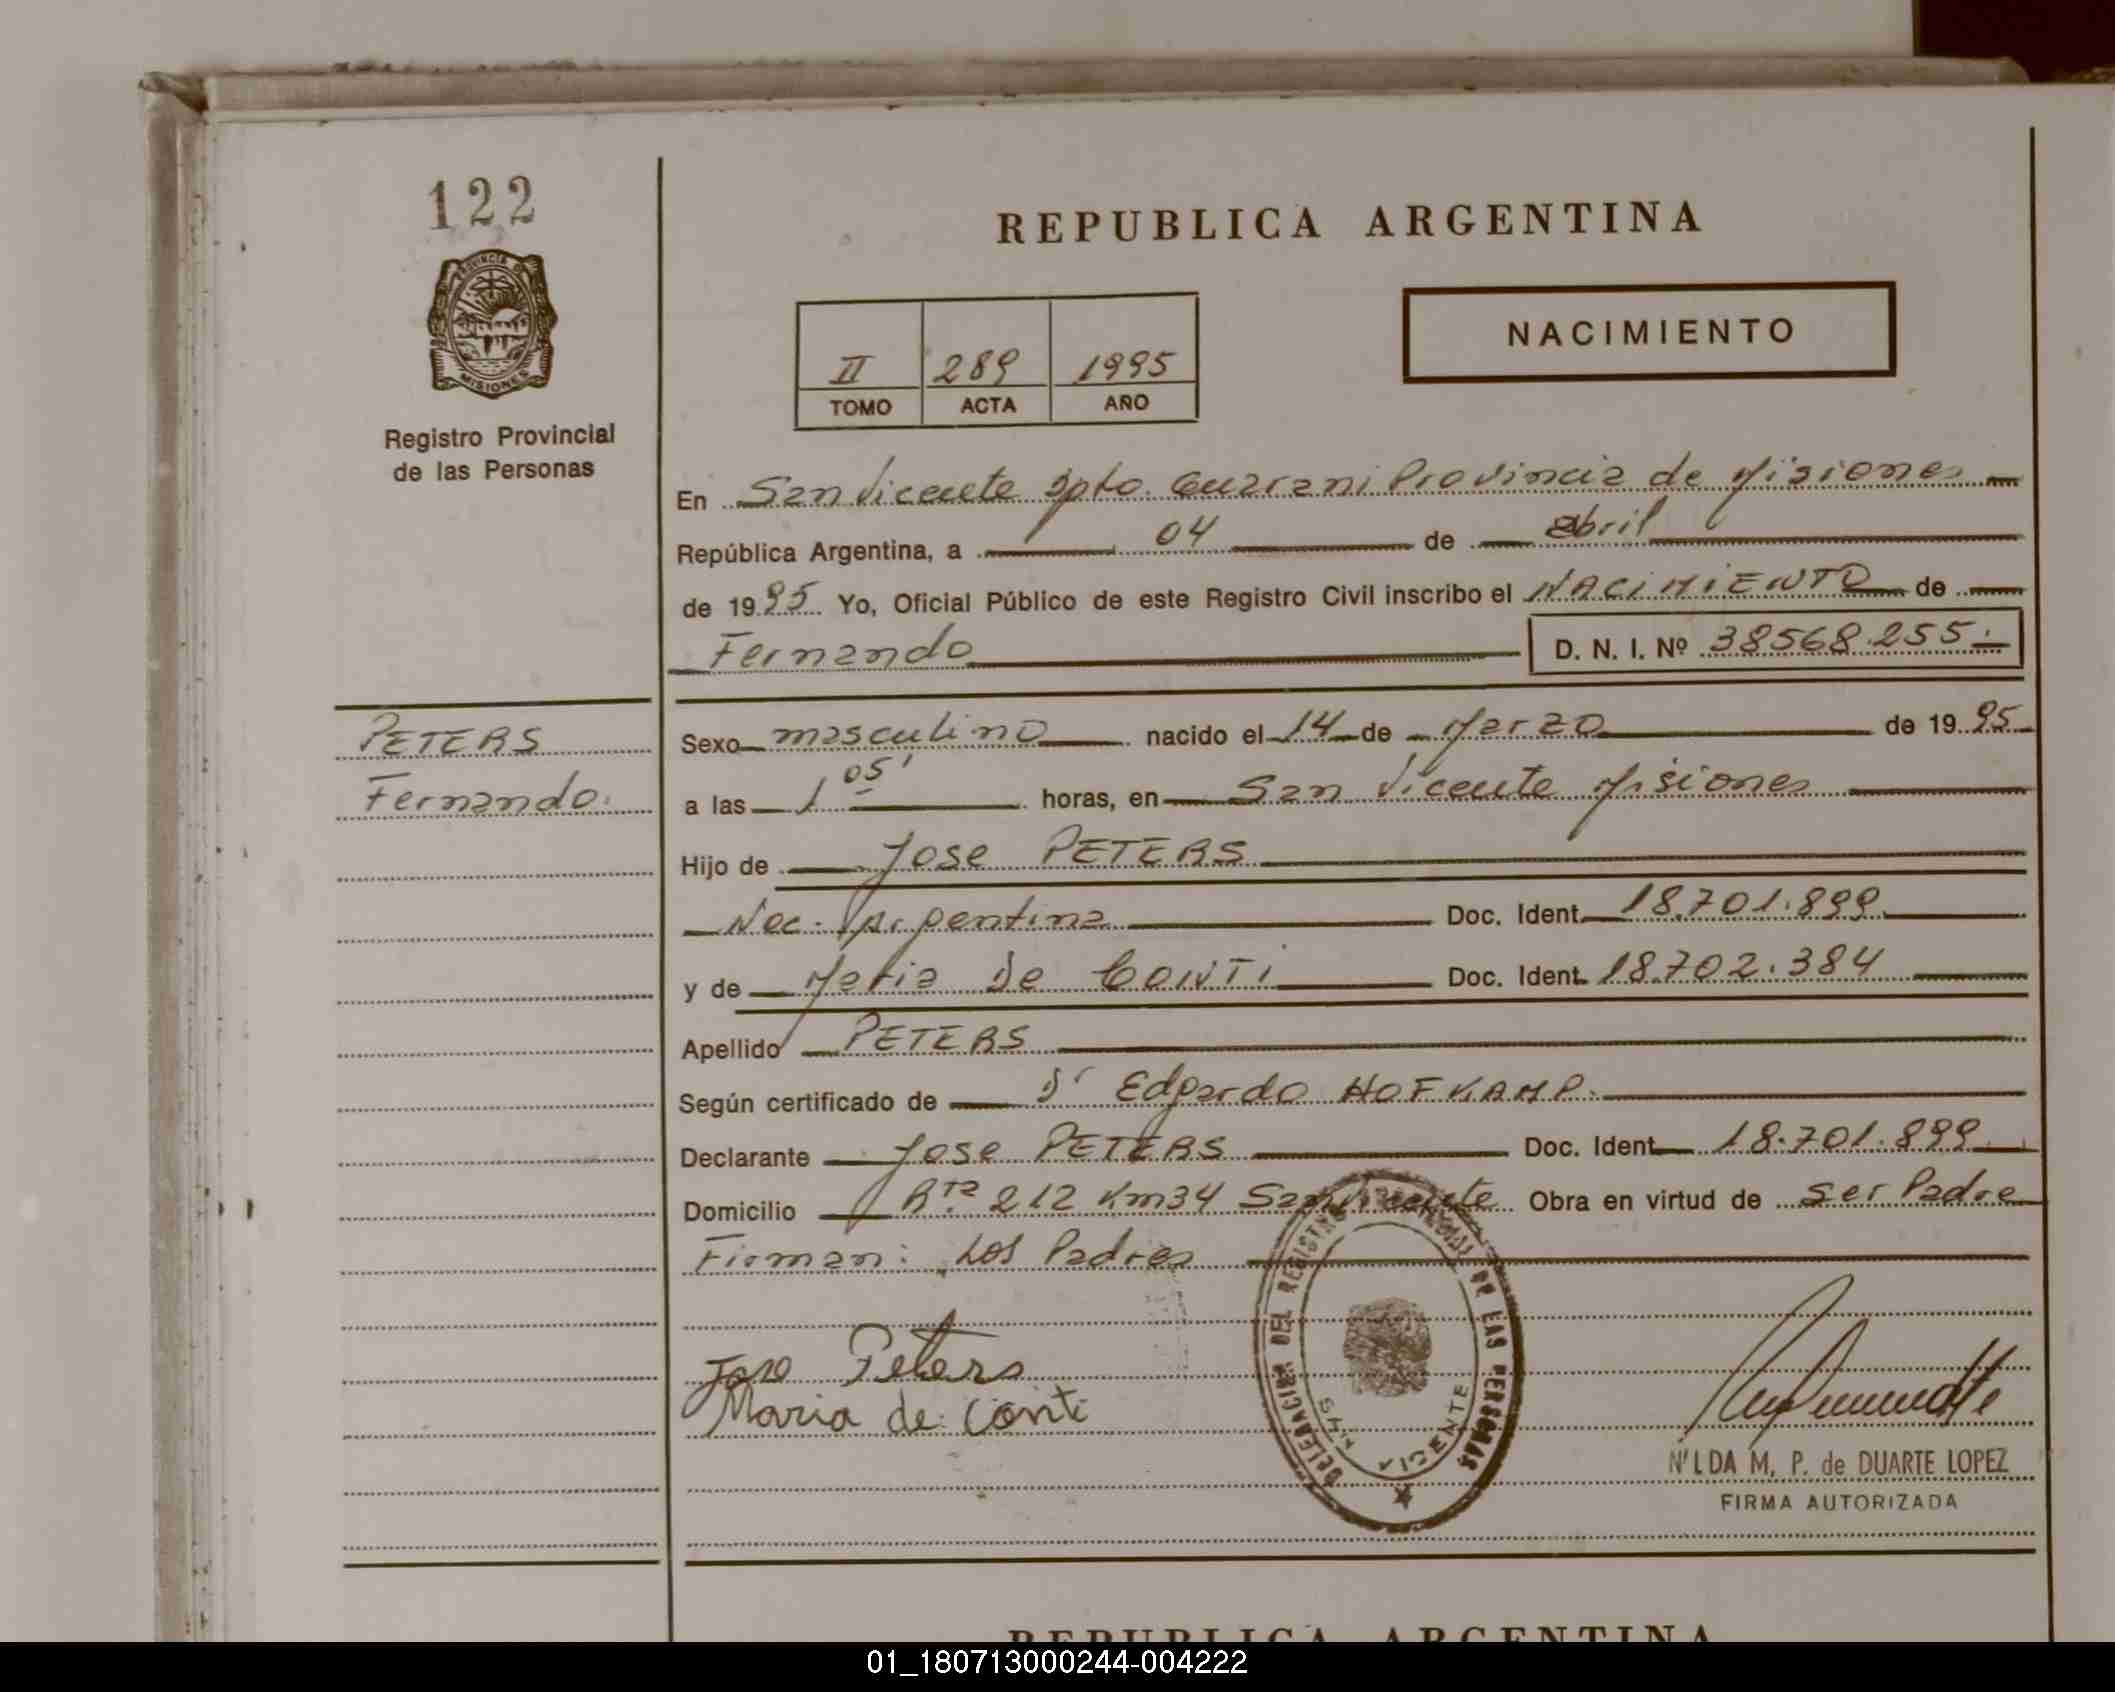 122
PROVINCIA DE
MISIONES
Registro Provincial
de las Personas
PETERS
Fernando.
REPUBLICA ARGENTINA
II 289 1995
TOMO ACTA AÑO
NACIMIENTO
En San Vicente Dpto. Guarani Provincia de Misiones
República Argentina, a 04 de abril
de 1995 Yo, Oficial Público de este Registro Civil inscribo el NACIMIENTO de
Fernando D. N. I. Nº 38568.255.-
Sexo masculino nacido el 14 de Marzo de 1995
a las 1 05' horas, en San Vicente Misiones
Hijo de Jose PETERS
Nac. Argentina Doc. Ident. 18.701.899
y de Maria De CONTI Doc. Ident. 18.702.384
Apellido PETERS
Según certificado de Dr Edgardo HOFKAMP.
Declarante Jose PETERS Doc. Ident. 18.701.899
Domicilio Rta 212 Km34 San Vicente Obra en virtud de ser Padre
Firman: Los Padres
Jose Peters
Maria de Conti
DELEGACION DEL REGISTRO PROVINCIAL DE LAS PERSONAS
SAN VICENTE
NILDA M. P. de DUARTE LOPEZ
FIRMA AUTORIZADA
REPUBLICA ARGENTINA
01_180713000244-004222